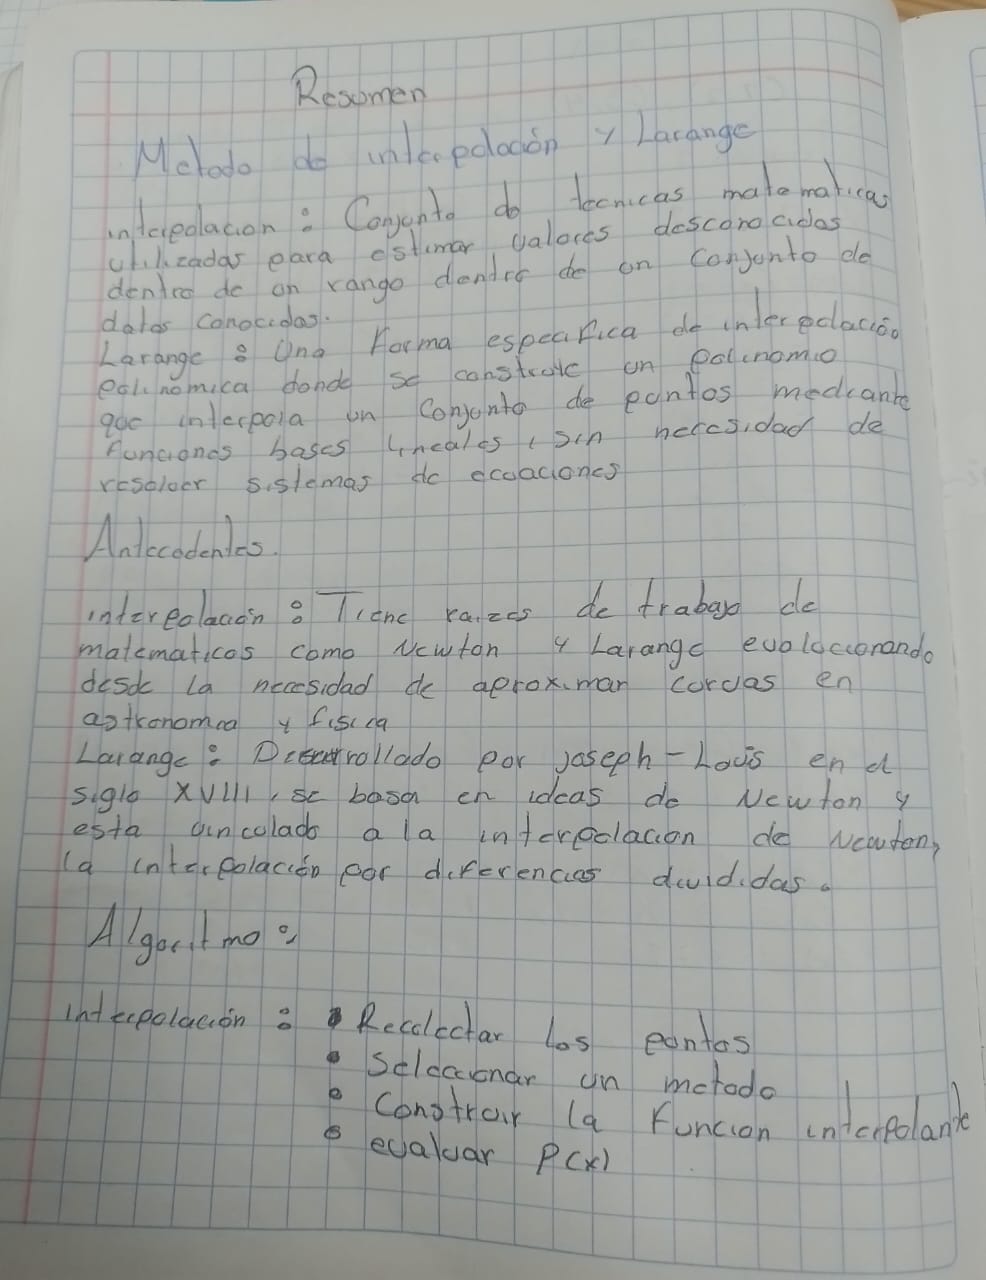 Resumen
Metodo de interpolación y Larange
interpolacion: Conjunto de tecnicas matematicas
utilizadas para estimar valores desconocidas
dentro de un rango dentro de un conjunto de
datos conocidos.
Larange: Una forma especifica de interpolación
polinomica donde se construie un polinomio
que interpola un conjunto de puntos mediante
funciones bases lineales, sin necesidad de
resolver sistemas de ecuaciones
Antecedentes.
interpolación: Tiene raizes de trabajo de
matematicos como Newton y Larange evoluccionando
desde la necesidad de aproximar curvas en
astronomia y fisica
Larange: Desarrollado por joseph-Louis en el
siglo XVIII, se basa en ideas de Newton y
esta vinculado a la interpolacion de Newton,
la interpolación por diferencias divididas.
Algoritmo:
interpolación: • Recolectar los puntos
• Seleccionar un metodo
• Construir la funcion interpolante
• evaluar P(x)